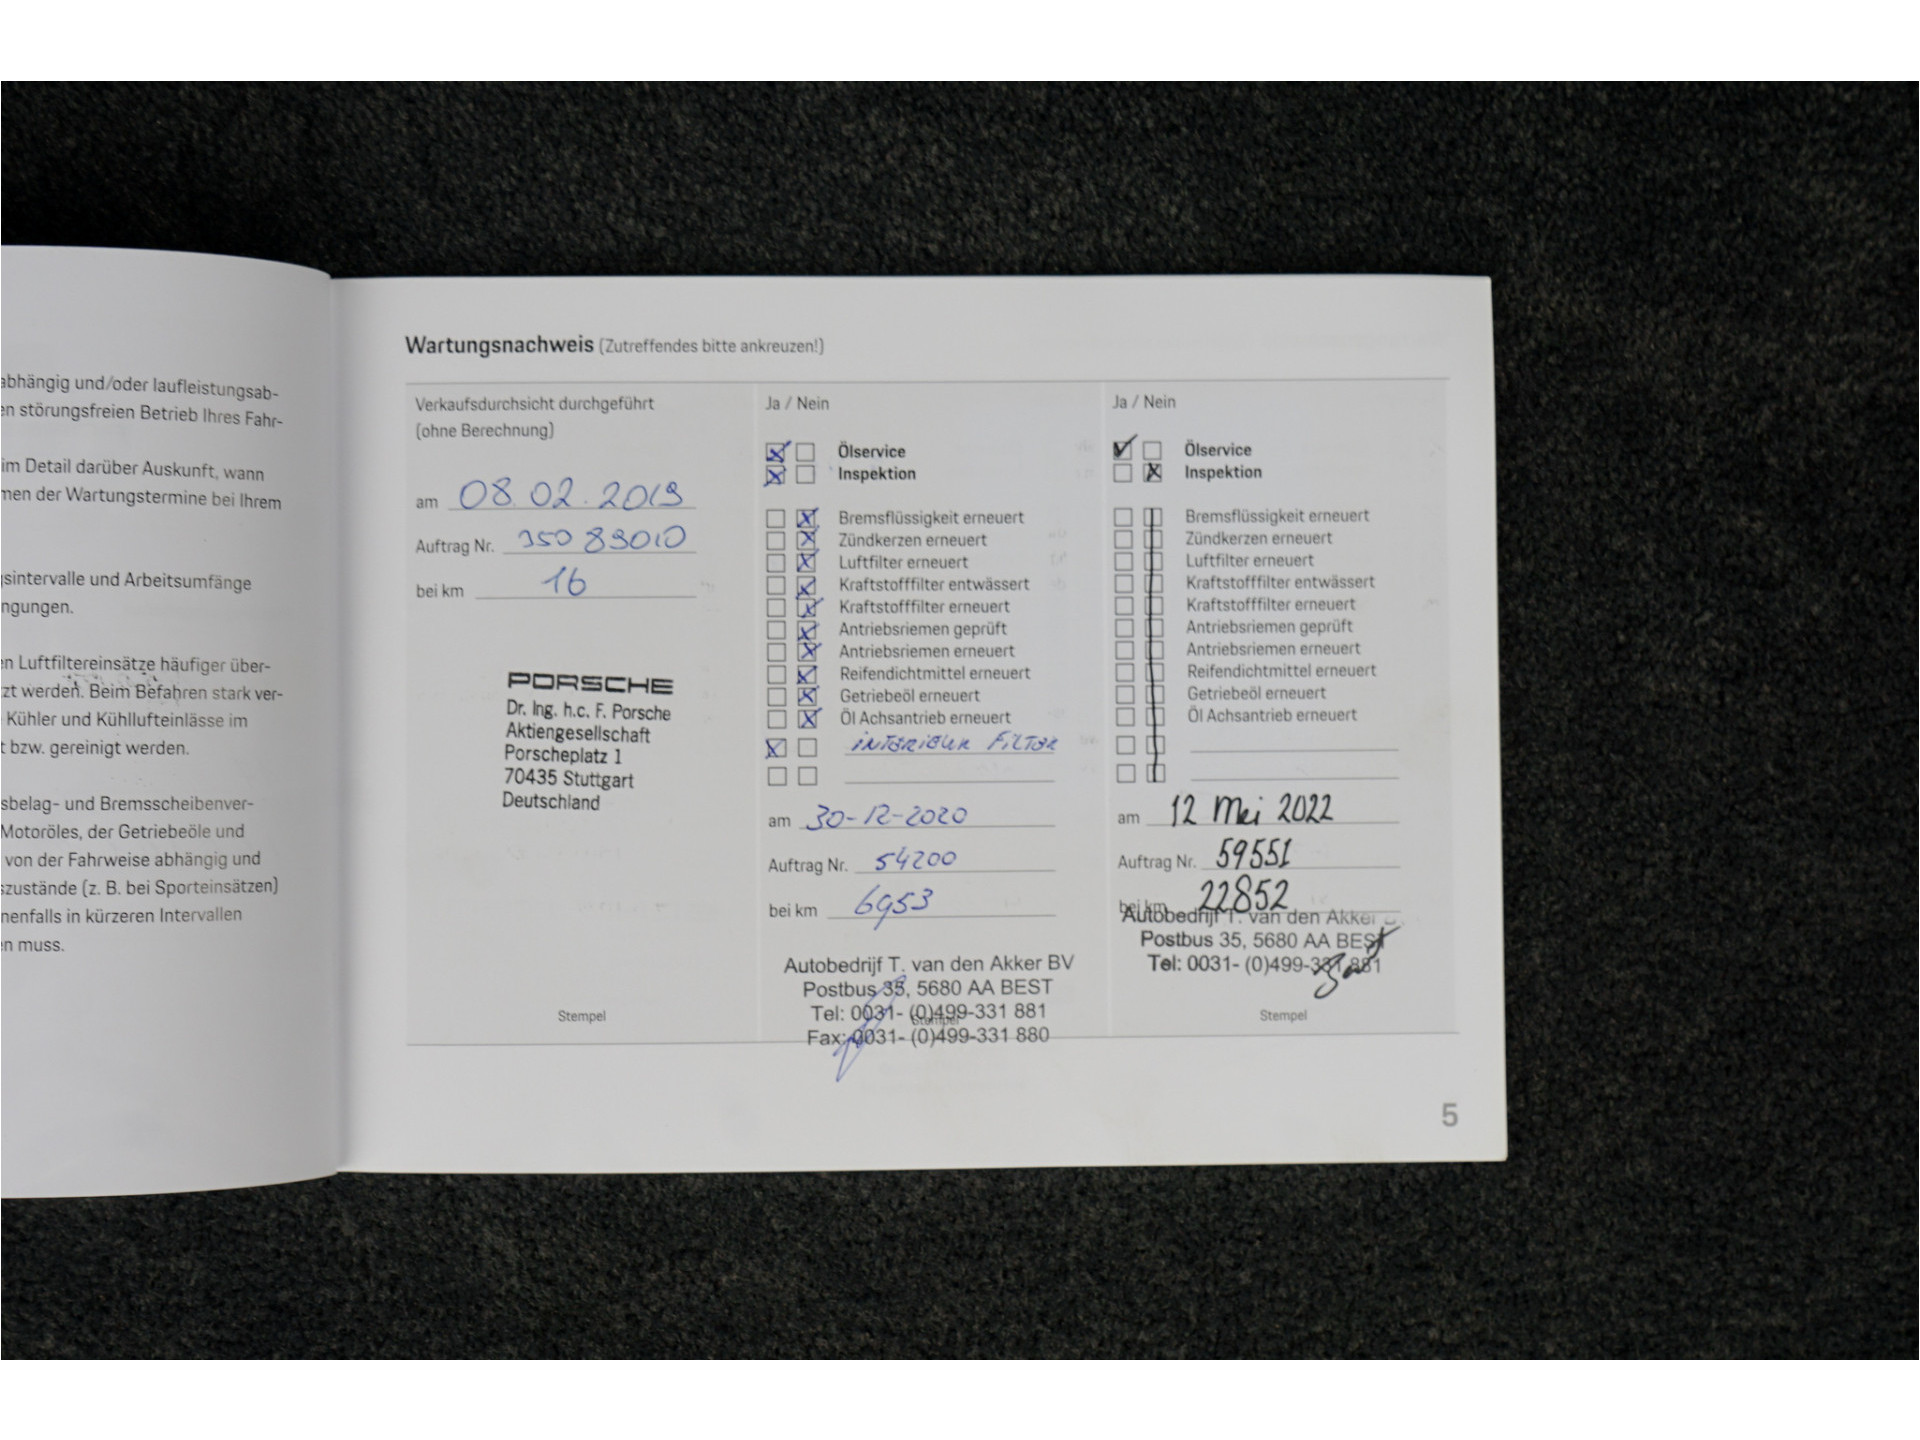 abhängig und/oder laufleistungsab-
en störungsfreien Betrieb Ihres Fahr-
im Detail darüber Auskunft, wann
men der Wartungstermine bei Ihrem
gsintervalle und Arbeitsumfänge
ngungen.
en Luftfiltereinsätze häufiger über-
zt werden. Beim Befahren stark ver-
Kühler und Kühllufteinlässe im
t bzw. gereinigt werden.
sbelag- und Bremsscheibenver-
Motoröles, der Getriebeöle und
von der Fahrweise abhängig und
szustände (z. B. bei Sporteinsätzen)
nenfalls in kürzeren Intervallen
en muss.
Wartungsnachweis (Zutreffendes bitte ankreuzen!)
Verkaufsdurchsicht durchgeführt
(ohne Berechnung)
am 08.02.2019
Auftrag Nr. 35083010
bei km 16
PORSCHE
Dr. Ing. h.c. F. Porsche
Aktiengesellschaft
Porscheplatz 1
70435 Stuttgart
Deutschland
Stempel
Ja / Nein
Ölservice
Inspektion
Bremsflüssigkeit erneuert
Zündkerzen erneuert
Luftfilter erneuert
Kraftstofffilter entwässert
Kraftstofffilter erneuert
Antriebsriemen geprüft
Antriebsriemen erneuert
Reifendichtmittel erneuert
Getriebeöl erneuert
Öl Achsantrieb erneuert
INTERIEUR FILTER
am 30-12-2020
Auftrag Nr. 54200
bei km 6953
Autobedrijf T. van den Akker BV
Postbus 35, 5680 AA BEST
Tel: 0031- (0)499-331 881
Stempel
Fax: 0031- (0)499-331 880
Ja / Nein
Ölservice
Inspektion
Bremsflüssigkeit erneuert
Zündkerzen erneuert
Luftfilter erneuert
Kraftstofffilter entwässert
Kraftstofffilter erneuert
Antriebsriemen geprüft
Antriebsriemen erneuert
Reifendichtmittel erneuert
Getriebeöl erneuert
Öl Achsantrieb erneuert
am 12 Mei 2022
Auftrag Nr. 59551
bei km 22852
Autobedrijf T. van den Akker
Postbus 35, 5680 AA BEST
Tel: 0031- (0)499-331 881
Stempel
5